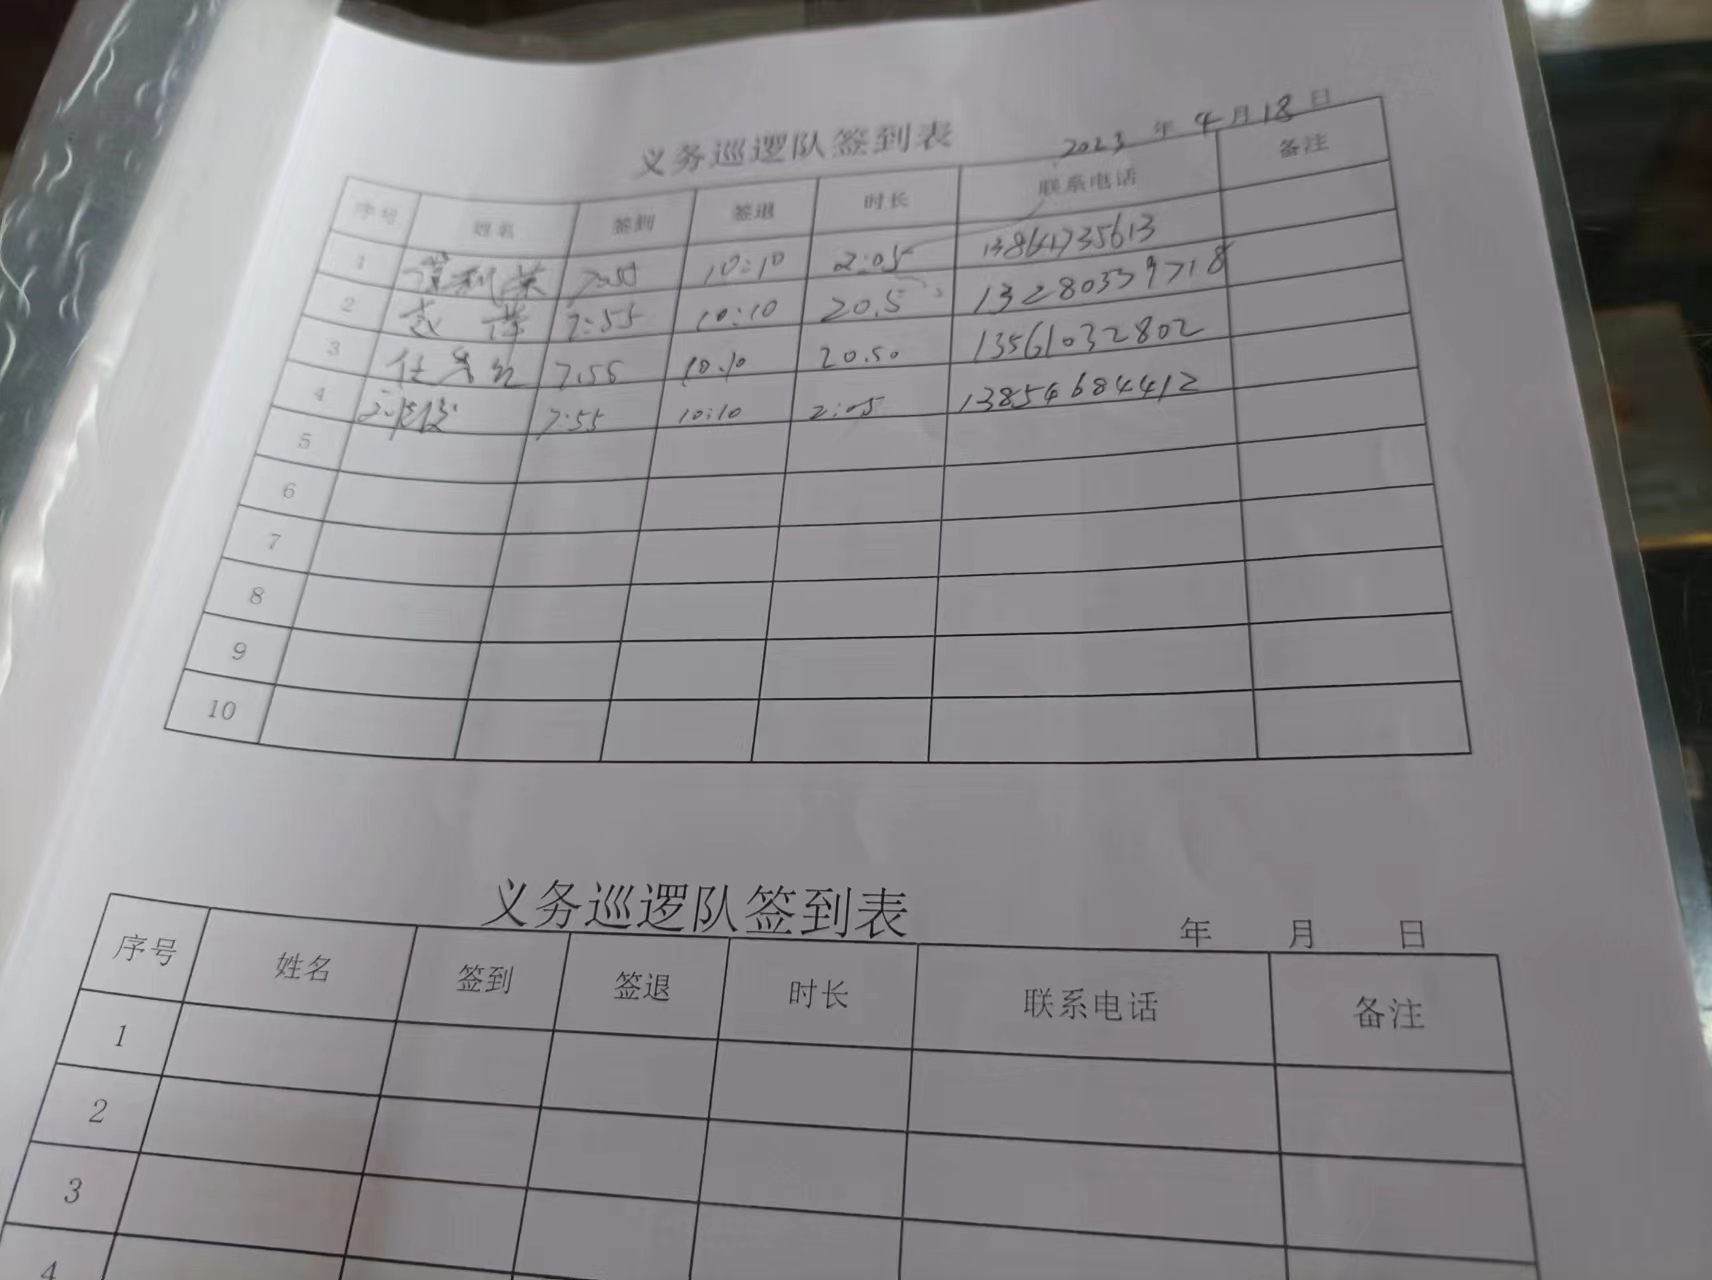 义务巡逻队签到表 2023年4月18日
序号 姓名 签到 签退 时长 联系电话 备注
1 7:55 10:10 2:05
2 赵 7:55 10:10 20.5 13280339718
3 任 7.55 10.10 20.50 13561032802
4 7:55 10:10 2:05 13854684412
5
6
7
8
9
10
义务巡逻队签到表 年 月 日
序号 姓名 签到 签退 时长 联系电话 备注
1
2
3
4